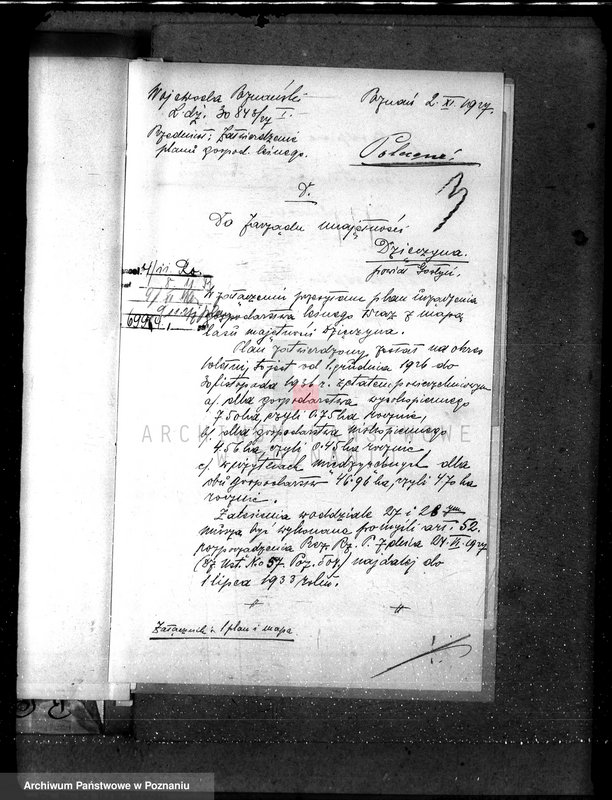 Wojewoda Poznański
L. dż. 30843/27 I.
Przedmiot: Zatwierdzenie
planu gospod. leśnego.
Poznań 2. XI. 1927.
Polecone!
D.
Do Zarządu majętności
Dzięczyna.
powiat Gostyń.
W załączeniu przesyłam plan urządzenia
gospodarstwa leśnego wraz z mapą
lasu majętności Dzięczyna.
Plan zatwierdzony został na okres
to jest od 1. grudnia 1926 do
30 listopada 1936 r. z etatem powierzchniowym
a/. dla gospodarstwa wysokopiennego
7.50 ha, czyli 0.75 ha rocznie,
b/. dla gospodarstwa niskopiennego
4.56 ha, czyli 0.45 ha rocznie,
c/. w użytkach międzyrębnych dla
obu gospodarstw 46.96 ha, czyli 4.70 ha
rocznie.
Zalesienia w oddziale 27 i 28
muszą być wykonane po myśli art. 52.
rozporządzenia Prez. Rz. P. z dnia 24. VI. 1927
(Dz. Ust. No 57. Poz. 504) najdalej do
1 lipca 1933 roku.
Załącznik: 1 plan i mapa
ARCHIWUM PAŃSTWOWE
W POZNANIU
Archiwum Państwowe w Poznaniu